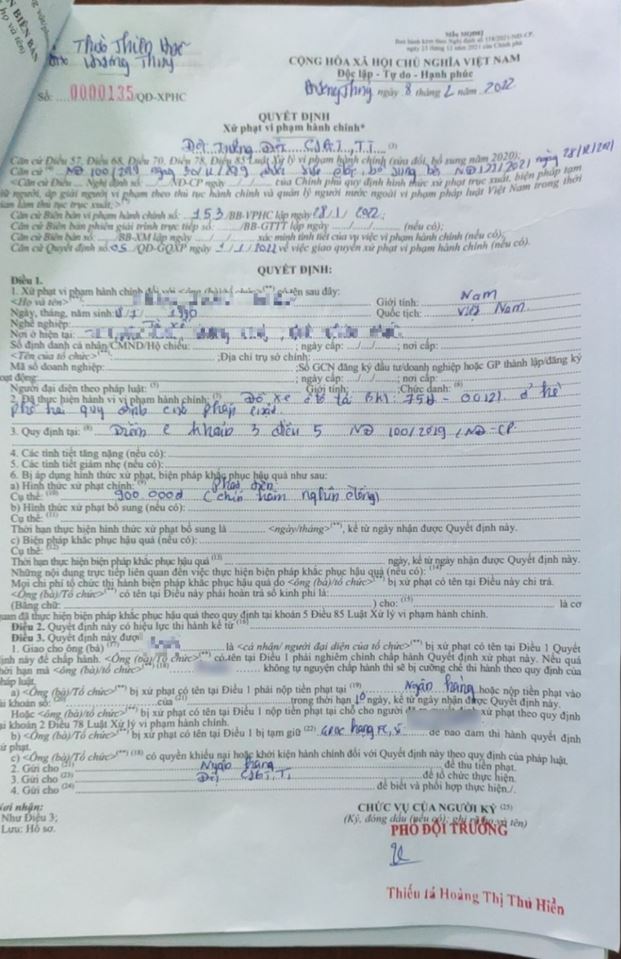 Mẫu MQĐ02
Ban hành kèm theo Nghị định số 118/2021/NĐ-CP
ngày 23 tháng 12 năm 2021 của Chính phủ
BIÊN BẢN
họ và tên)
Thừa Thiên Huế
Hương Thủy
CỘNG HÒA XÃ HỘI CHỦ NGHĨA VIỆT NAM
Độc lập - Tự do - Hạnh phúc
Số: 0000135/QĐ-XPHC
Hương Thủy ngày 8 tháng 2 năm 2022
QUYẾT ĐỊNH
Xử phạt vi phạm hành chính*
Đội Trưởng Đội CSGT, TT (3)
Căn cứ Điều 57, Điều 68, Điều 70, Điều 78, Điều 85 Luật Xử lý vi phạm hành chính (sửa đổi, bổ sung năm 2020);
Căn cứ (4) NĐ 100/2019 ngày 30/12/2019 được sửa đổi, bổ sung bởi NĐ 123/2021 ngày 28/12/2021
<Căn cứ Điều... Nghị định số: .../.../NĐ-CP ngày .../.../... của Chính phủ quy định hình thức xử phạt trục xuất, biện pháp tạm
giữ người, áp giải người vi phạm theo thủ tục hành chính và quản lý người nước ngoài vi phạm pháp luật Việt Nam trong thời
gian làm thủ tục trục xuất;>
Căn cứ Biên bản vi phạm hành chính số: 153/BB-VPHC lập ngày 28/1/2022;
Căn cứ Biên bản phiên giải trình trực tiếp số: .../BB-GTTT lập ngày .../.../... (nếu có);
Căn cứ Biên bản số: .../BB-XM lập ngày .../.../... xác minh tình tiết của vụ việc vi phạm hành chính (nếu có);
Căn cứ Quyết định số: 05/QĐ-GQXP ngày 1/1/2022 về việc giao quyền xử phạt vi phạm hành chính (nếu có).
QUYẾT ĐỊNH:
Điều 1.
1. Xử phạt vi phạm hành chính đối với <ông (bà)/tổ chức>(**) có tên sau đây:
<Họ và tên>(**) Giới tính: Nam
Ngày, tháng, năm sinh /1/1990 Quốc tịch: Việt Nam
Nghề nghiệp:
Nơi ở hiện tại:
Số định danh cá nhân/CMND/Hộ chiếu: ; ngày cấp: .../.../...; nơi cấp:
<Tên của tổ chức>(**) ;Địa chỉ trụ sở chính:
Mã số doanh nghiệp: ;Số GCN đăng ký đầu tư/doanh nghiệp hoặc GP thành lập/đăng ký
hoạt động: ; ngày cấp: .../.../...; nơi cấp:
Người đại diện theo pháp luật: (5) Giới tính: ;Chức danh: (6)
2. Đã thực hiện hành vi vi phạm hành chính: (7) Đỗ xe ô tô tải BKS: 75H - 00121 ở hè
phố trái quy định của pháp luật.
3. Quy định tại: (8) Điểm e khoản 3 điều 5 NĐ 100/2019/NĐ-CP
4. Các tình tiết tăng nặng (nếu có):
5. Các tình tiết giảm nhẹ (nếu có):
6. Bị áp dụng hình thức xử phạt, biện pháp khắc phục hậu quả như sau:
a) Hình thức xử phạt chính: (9) Phạt tiền
Cụ thể: (10) 900.000đ (chín trăm nghìn đồng)
b) Hình thức xử phạt bổ sung (nếu có):
Cụ thể: (11)
Thời hạn thực hiện hình thức xử phạt bổ sung là <ngày/tháng>(**), kể từ ngày nhận được Quyết định này.
c) Biện pháp khắc phục hậu quả (nếu có):
Cụ thể: (12)
Thời hạn thực hiện biện pháp khắc phục hậu quả (13) ngày, kể từ ngày nhận được Quyết định này.
Những nội dung trực tiếp liên quan đến việc thực hiện biện pháp khắc phục hậu quả (nếu có): (14)
Mọi chi phí tổ chức thi hành biện pháp khắc phục hậu quả do <ông (bà)/tổ chức>(**) bị xử phạt có tên tại Điều này chi trả.
<Ông (bà)/Tổ chức>(**) có tên tại Điều này phải hoàn trả số kinh phí là:
(Bằng chữ: ) cho: (15) là cơ
quan đã thực hiện biện pháp khắc phục hậu quả theo quy định tại khoản 5 Điều 85 Luật Xử lý vi phạm hành chính.
Điều 2. Quyết định này có hiệu lực thi hành kể từ (16)
Điều 3. Quyết định này được
1. Giao cho ông (bà) (17) là <cá nhân/người đại diện của tổ chức>(**) bị xử phạt có tên tại Điều 1 Quyết
định này để chấp hành. <Ông (bà)/Tổ chức>(**) có tên tại Điều 1 phải nghiêm chỉnh chấp hành Quyết định xử phạt này. Nếu quá
thời hạn mà <ông (bà)/tổ chức>(**) không tự nguyện chấp hành thì sẽ bị cưỡng chế thi hành theo quy định của
pháp luật.
a) <Ông (bà)/Tổ chức>(**) bị xử phạt có tên tại Điều 1 phải nộp tiền phạt tại (19) Ngân hàng hoặc nộp tiền phạt vào
tài khoản số: (20) của (21) trong thời hạn 10 ngày, kể từ ngày nhận được Quyết định này.
Hoặc <ông (bà)/tổ chức>(**) bị xử phạt có tên tại Điều 1 nộp tiền phạt tại chỗ cho người xử phạt theo quy định
tại khoản 2 Điều 78 Luật Xử lý vi phạm hành chính.
b) <Ông (bà)/Tổ chức>(**) bị xử phạt có tên tại Điều 1 bị tạm giữ (22) để bảo đảm thi hành quyết định
xử phạt.
c) <Ông (bà)/Tổ chức>(**) (18) có quyền khiếu nại hoặc khởi kiện hành chính đối với Quyết định này theo quy định của pháp luật.
2. Gửi cho (21) Ngân hàng để thu tiền phạt.
3. Gửi cho (23) Đội CSGT.TT để tổ chức thực hiện.
4. Gửi cho (24) để biết và phối hợp thực hiện./.
Nơi nhận:
Như Điều 3;
Lưu: Hồ sơ.
CHỨC VỤ CỦA NGƯỜI KÝ (25)
(Ký, đóng dấu (nếu có); ghi rõ họ và tên)
PHÓ ĐỘI TRƯỞNG
Thiếu tá Hoàng Thị Thu Hiền